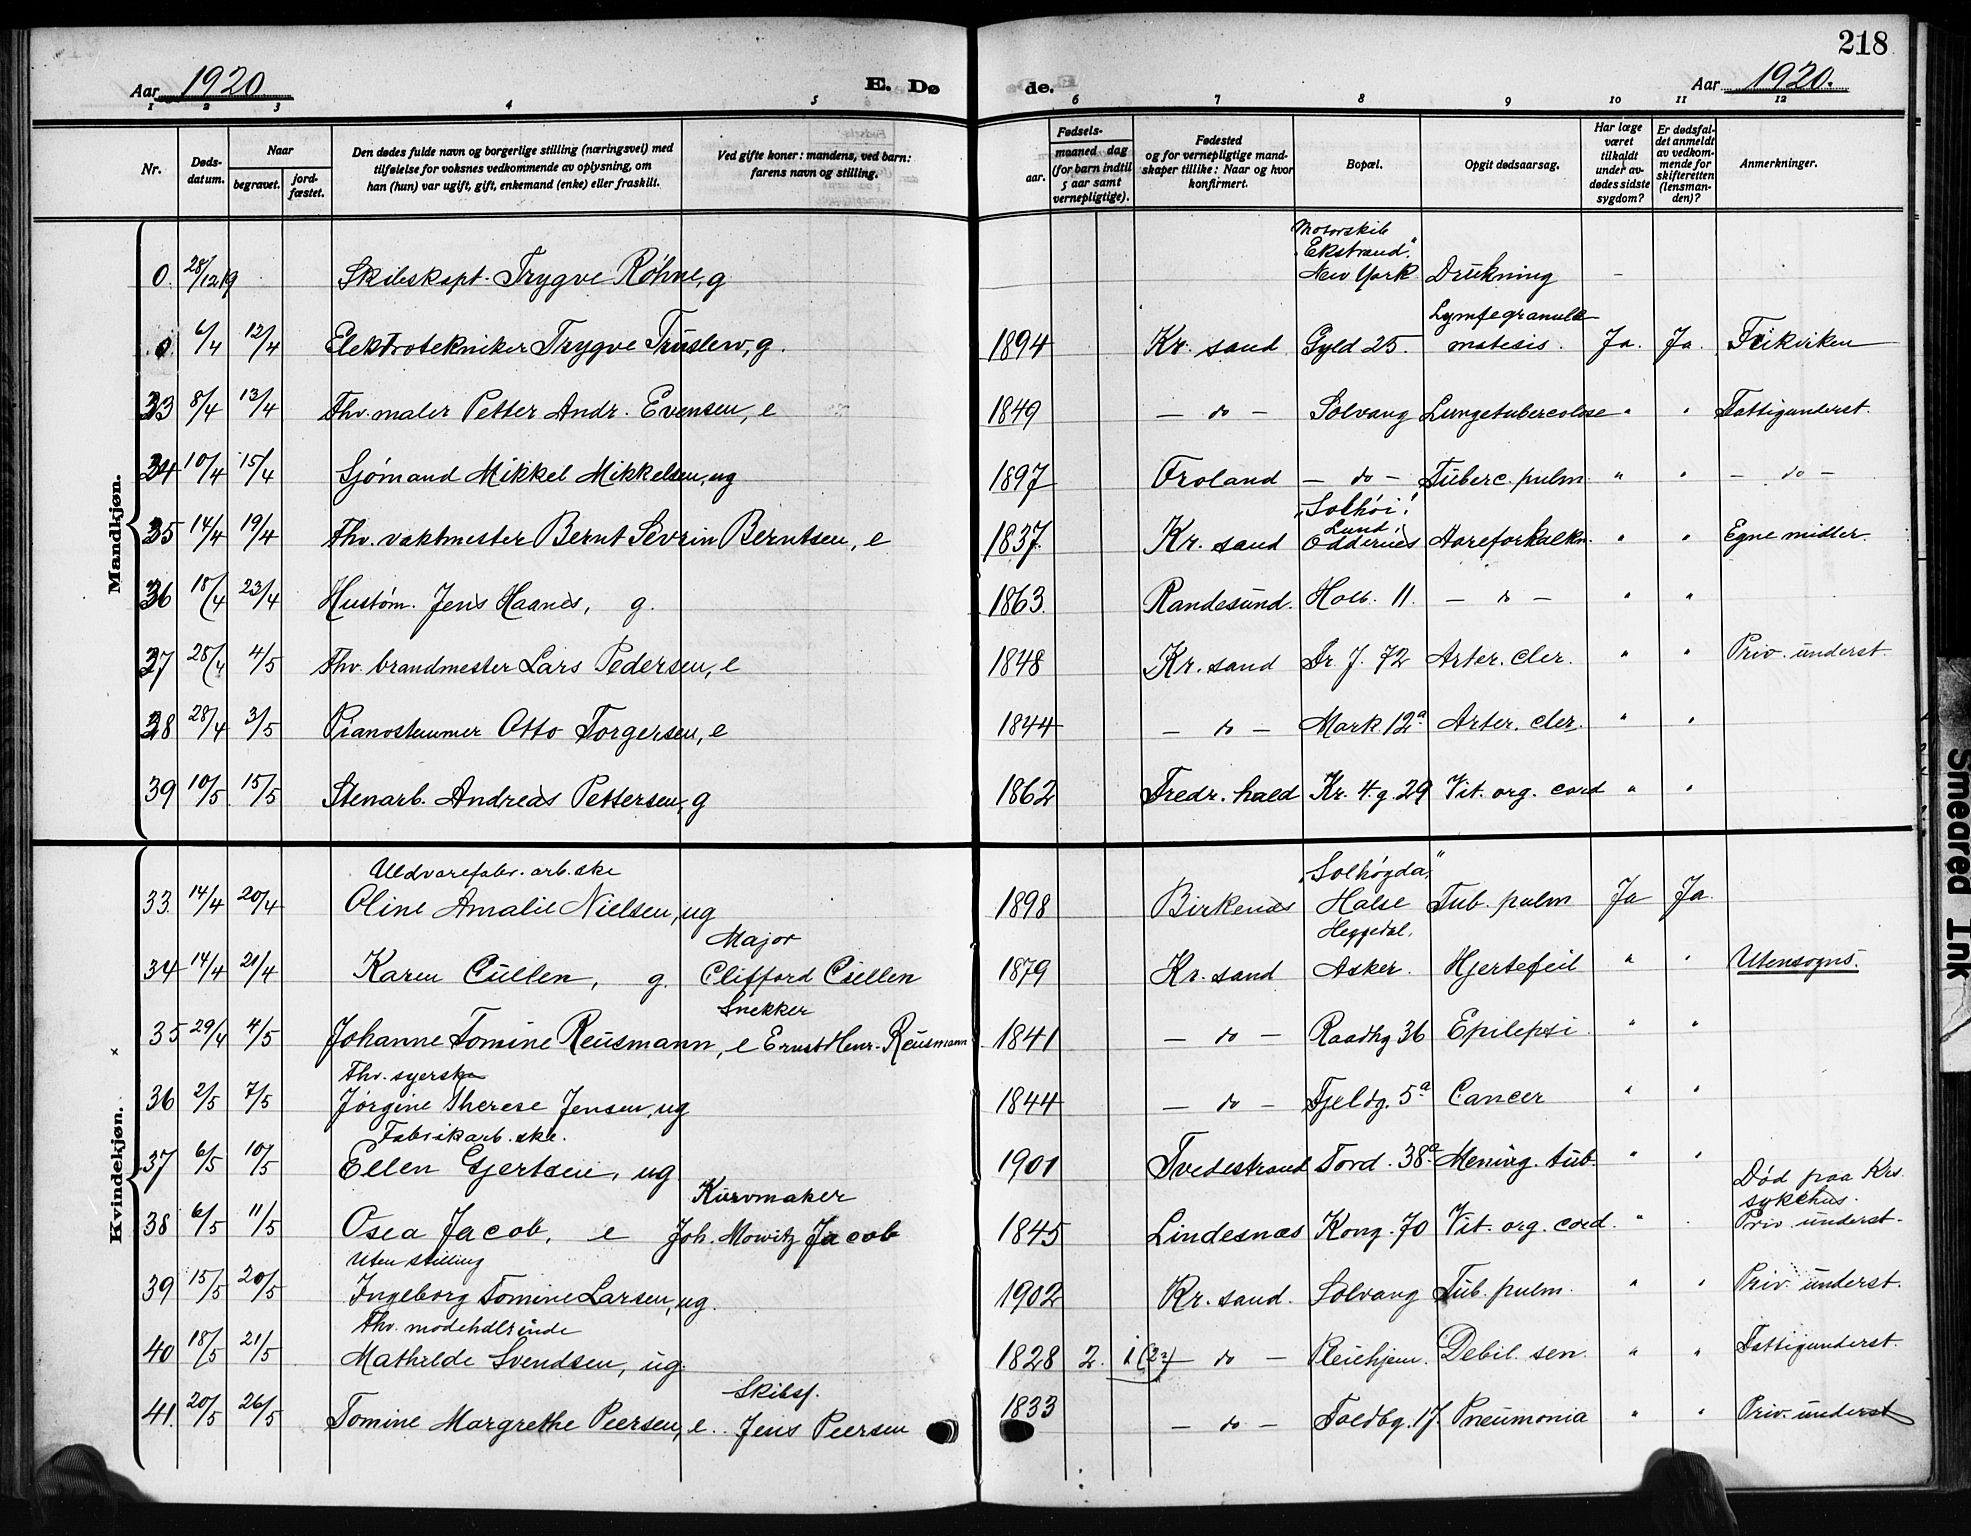 218
Aar 1920 E. Dø de. Aar 1920.
1 2 3 4 5 6 7 8 9 10 11 12
Nr. Døds-datum. Naar begravet. jord-fæstet. Den dødes fulde navn og borgerlige stilling (næringsvei) med tilføielse for voksnes vedkommende av oplysning, om han (hun) var ugift, gift, enkemand (enke) eller fraskilt. Ved gifte koner: mandens, ved barn: farens navn og stilling. Fødsels- aar. maaned dag (for barn indtil 5 aar samt vernepligtige). Fødested og for vernepligtige mand-skaper tillike: Naar og hvor konfirmert. Bopæl. Opgit dødsaarsag. Har læge været tilkaldt under av-dødes sidste sygdom? Er dødsfal-det anmeldt av vedkom-mende for skifteretten (lensman-den)? Anmerkninger.
Mandkjøn.
0. 28/12 19 Skibskapt. Trygve Röhne, g Motorskib "Ekstrand". New York Drukning –
0 6/4 12/4 Elektrotekniker Trygve Truslew, g. 1894 Kr. sand Gyld 25. Lymfegranulomatesis. Ja. Ja. Frikirken
33 8/4 13/4 Fhv. maler Petter Andr. Evensen, e 1849 – do – Solvang Lungetubercolose " " Fattigunderst.
34 10/4 15/4 Sjömand Mikkel Mikkelsen, ug 1897 Froland – do – Tuberc. pulm " " – do –
35 14/4 19/4 Fhv. vaktmester Bernt Sevrin Berntsen, e 1837. Kr. sand "Solhöi". Lund, Oddernes Aareforkalkn. " " Egne midler.
36 18/4 23/4 Hustöm. Jens Haanes, g. 1863. Randesund. Holb. 11. – do – " "
37 28/4 4/5 Fhv. brandmester Lars Pedersen, e 1848 Kr. sand Dr. J. 72 Arter. cler. " " Priv. underst.
38 28/4 3/5 Pianostemmer Otto Torgersen, e 1844 – do – Mark. 12a Arter. cler. " "
39 10/5 15/5 Stenarb. Andreas Pettersen, g 1862 Fredr. hald Kr. 4. g. 29 Vit. org. cord " "
Kvindekjøn.
33. 14/4 20/4 Uldvarefabr. arb. ske Oline Amalie Nielsen, ug 1898 Birkenes "Solhögda," Halse Tub. pulm Ja Ja.
34 14/4 21/4 Karen Cullen, g. Major Clifford Cullen 1879 Kr. sand Heggedal, Asker. Hjertefeil " " Utensogns.
35 29/4 4/5 Johanne Tomine Reusmann, e Snekker Ernst Henr. Reusmann 1841 – do – Raadhg 36 Epilepsi " "
36 2/5 7/5 Fhv. syerske Jörgine Therese Jensen, ug 1844 – do – Fjeldg. 5a Cancer " "
37 6/5 10/5 Fabrikarb. ske. Ellen Gjertsen, ug 1901 Tvedestrand Tord. 38a Mening. tub. " "
38 6/5 11/5 Osea Jacob, e Kurvmaker Joh. Mowitz Jacob 1845 Lindesnæs Kong. 70 Vit. org. cord. " " Död paa Krs. sykehus. Priv. underst.
39 15/5 20/5 Uten stilling Ingeborg Tomine Larsen, ug. 1902 Kr. sand. Solvang Tub. pulm. " " Priv. underst.
40 18/5 21/5 Fhv. modehdlrinde Mathilde Svendsen, ug. 1828 2. – do – Pleiehjem. Debil. sen. " " Fattigunderst.
41. 20/5 26/5 Tomine Margrethe Peersen, e. Skibsf. Jens Peersen 1833 – do – Toldbg. 17. Pneumonia " " Priv. underst
Smeared Ink